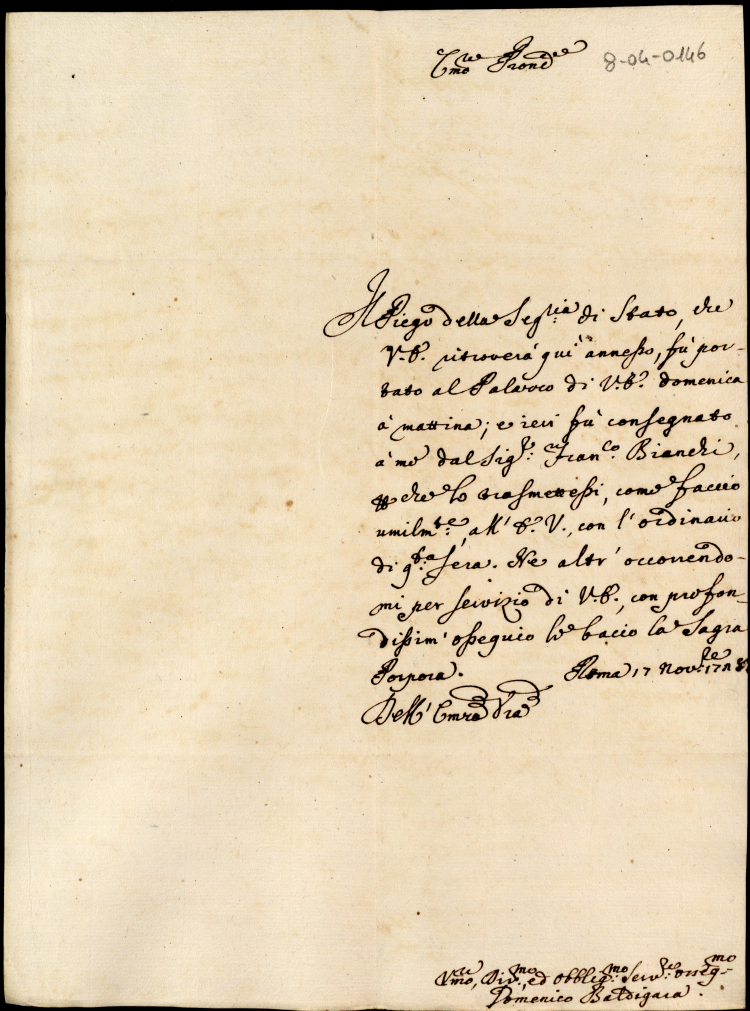 Em̃o Pron̄e 8-04-0146
Il Piego della Seg.ria di Stato, che
V.E. ritroverà quì annesso, fù por-
tato al Palazzo di V.E. domenica
à mattina; e ieri fù consegnato
à me dal Sig.re Fran.co Bianchi,
che lo trasmettessi, come faccio
umilm.te, all' E.V., con l'ordinario
di q.sta sera. Ne altr' occorrendo-
mi per servizio di V.E., con profon-
dissim' ossequio le bacio la Sagra
Porpora. Roma 17 Nov.re
Dell' Em̃a V̄ra
Vmo, Div.mo, ed Obblig.mo Serv.re osseq.mo
Domenico Baldigara.